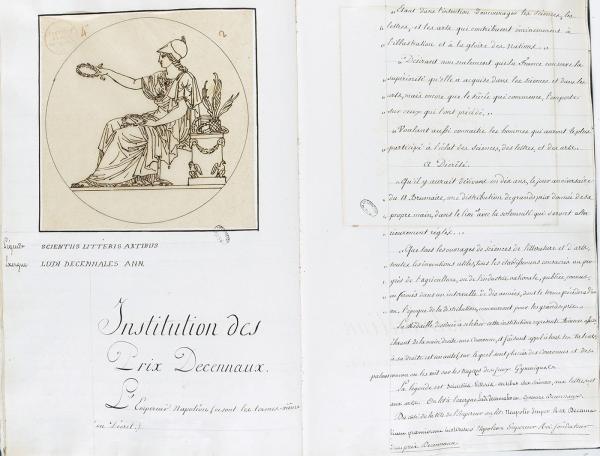 4
2
Légende SCIENTIIS LITTERIS ARTIBUS
Exergue LUDI DECENNALES ANN.
Institution des
Prix Decennaux.
L'Empereur Napoléon (ce sont les termes
du Décret.)
« Etant dans l'intention d'encourager les sciences, les
« lettres, et les arts qui contribuent éminemment à
« l'illustration et à la gloire des Nations. »
« Désirant non seulement que la France conserve la
« supériorité qu'elle a acquise dans les sciences et dans les
« arts, mais encore que le siècle qui commence, l'emporte
« sur ceux qui l'ont précédé, »
« Voulant aussi connaitre les hommes qui auront le plus
« participé à l'éclat des sciences, des lettres, et des arts.
A Décrété.
« Qu'il y aurait de dix ans en dix ans, le jour anniversaire
« du 18 Brumaire, une distribution de grands prix donnés de sa
« propre main, dans le lieu avec la solemnité qui seront
rieurement réglés. »
« Que tous les ouvrages de sciences de littérature et d'arts,
« toutes les inventions utiles, tous les établissemens consacrés au pro-
« grès de l'agriculture, ou de l'industrie nationale, publiés, connus
« ou formés dans un intervalle de dix années, dont le terme précédera d'un an
« l'époque de la distribution, concourront pour les grands prix. »
La Médaille destinée à célébrer cette institution représente Minerve assise
tenant de la main droite une Couronne, et faisant appel à tous les talents,
à sa droite est un autel, sur lequel sont placées des Couronnes et des
palmes comme on les voit sur les
La légende est aux sciences, aux lettres, et
aux arts. On lit à l'exergue
Du côté de la tête de l'Empereur on lit
Napoléon Empereur Roi fondateur
des prix Décennaux